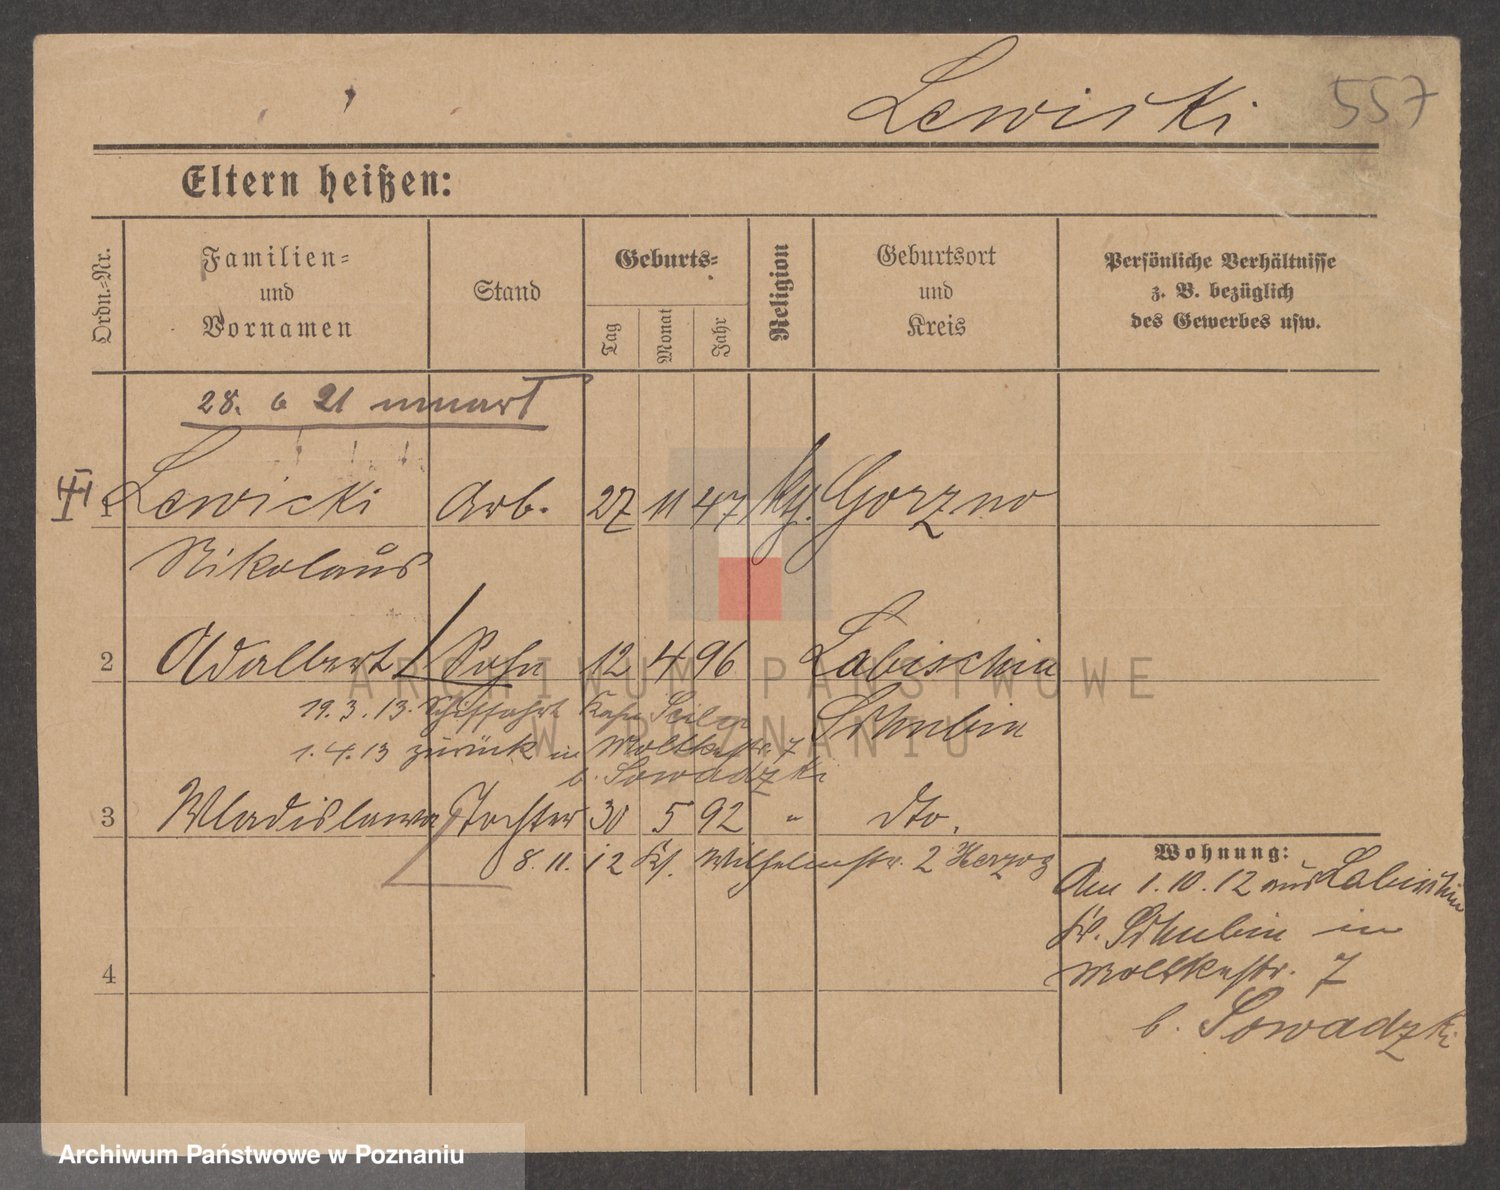 Lewicki 557
Eltern heißen:
Ordn.-Nr.
Familien-
und
Vornamen
Stand
Geburts-
Tag
Monat
Jahr
Religion
Geburtsort
und
Kreis
Persönliche Verhältnisse
z. B. bezüglich
des Gewerbes usw.
28. 6 21 umart
III
1 Lewicki Arb. 27 11 47 kth. Gorzno
Nikolaus
2 Adalbert Sohn 12 4 96 Labischin
19.3.13. Schiffahrt Kahn Schubin
1.4.13 zurück in Moltkestr. 7
b. Sowadzki
3 Wladislawa Tochter 30 5 92 " dto.
8.11.12 Kf. Wilhelmstr. 2 Herzog
4
Wohnung:
Am 1.10.12 aus Labischin
Kr. Schubin in
Moltkestr. 7
b. Sowadzki
ARCHIWUM PAŃSTWOWE
W POZNANIU
Archiwum Państwowe w Poznaniu